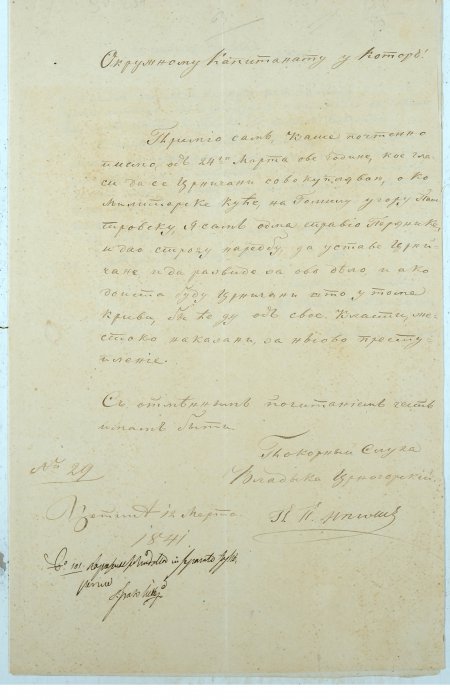 Окружному Капитанату у Которъ!
Примiо самъ, Ваше почтенно
писмо, одъ 24го Марта ове године, кое гла-
си да се Црничани совокуплявaю, око
Милитарске куће, на Гомилу у гору Паш-
тровску, Я самъ одма справiо Перянике,
и дао строгу наредбу, да уставе Црни-
чане, и да развиде за ово дѣло, и ако
доиста буду Црничани што у томе
криви, биће ду одъ свое Власти, же-
стоко наказани, за ньiово престу-
пленiе.
Съ отмѣннымъ почитанiемъ честь
имамъ быти
Покорный Слуга
Владыка Црногорскiй
№ 29
П. П. Нѣгошъ
Цетинѣ 12 Марта
1841